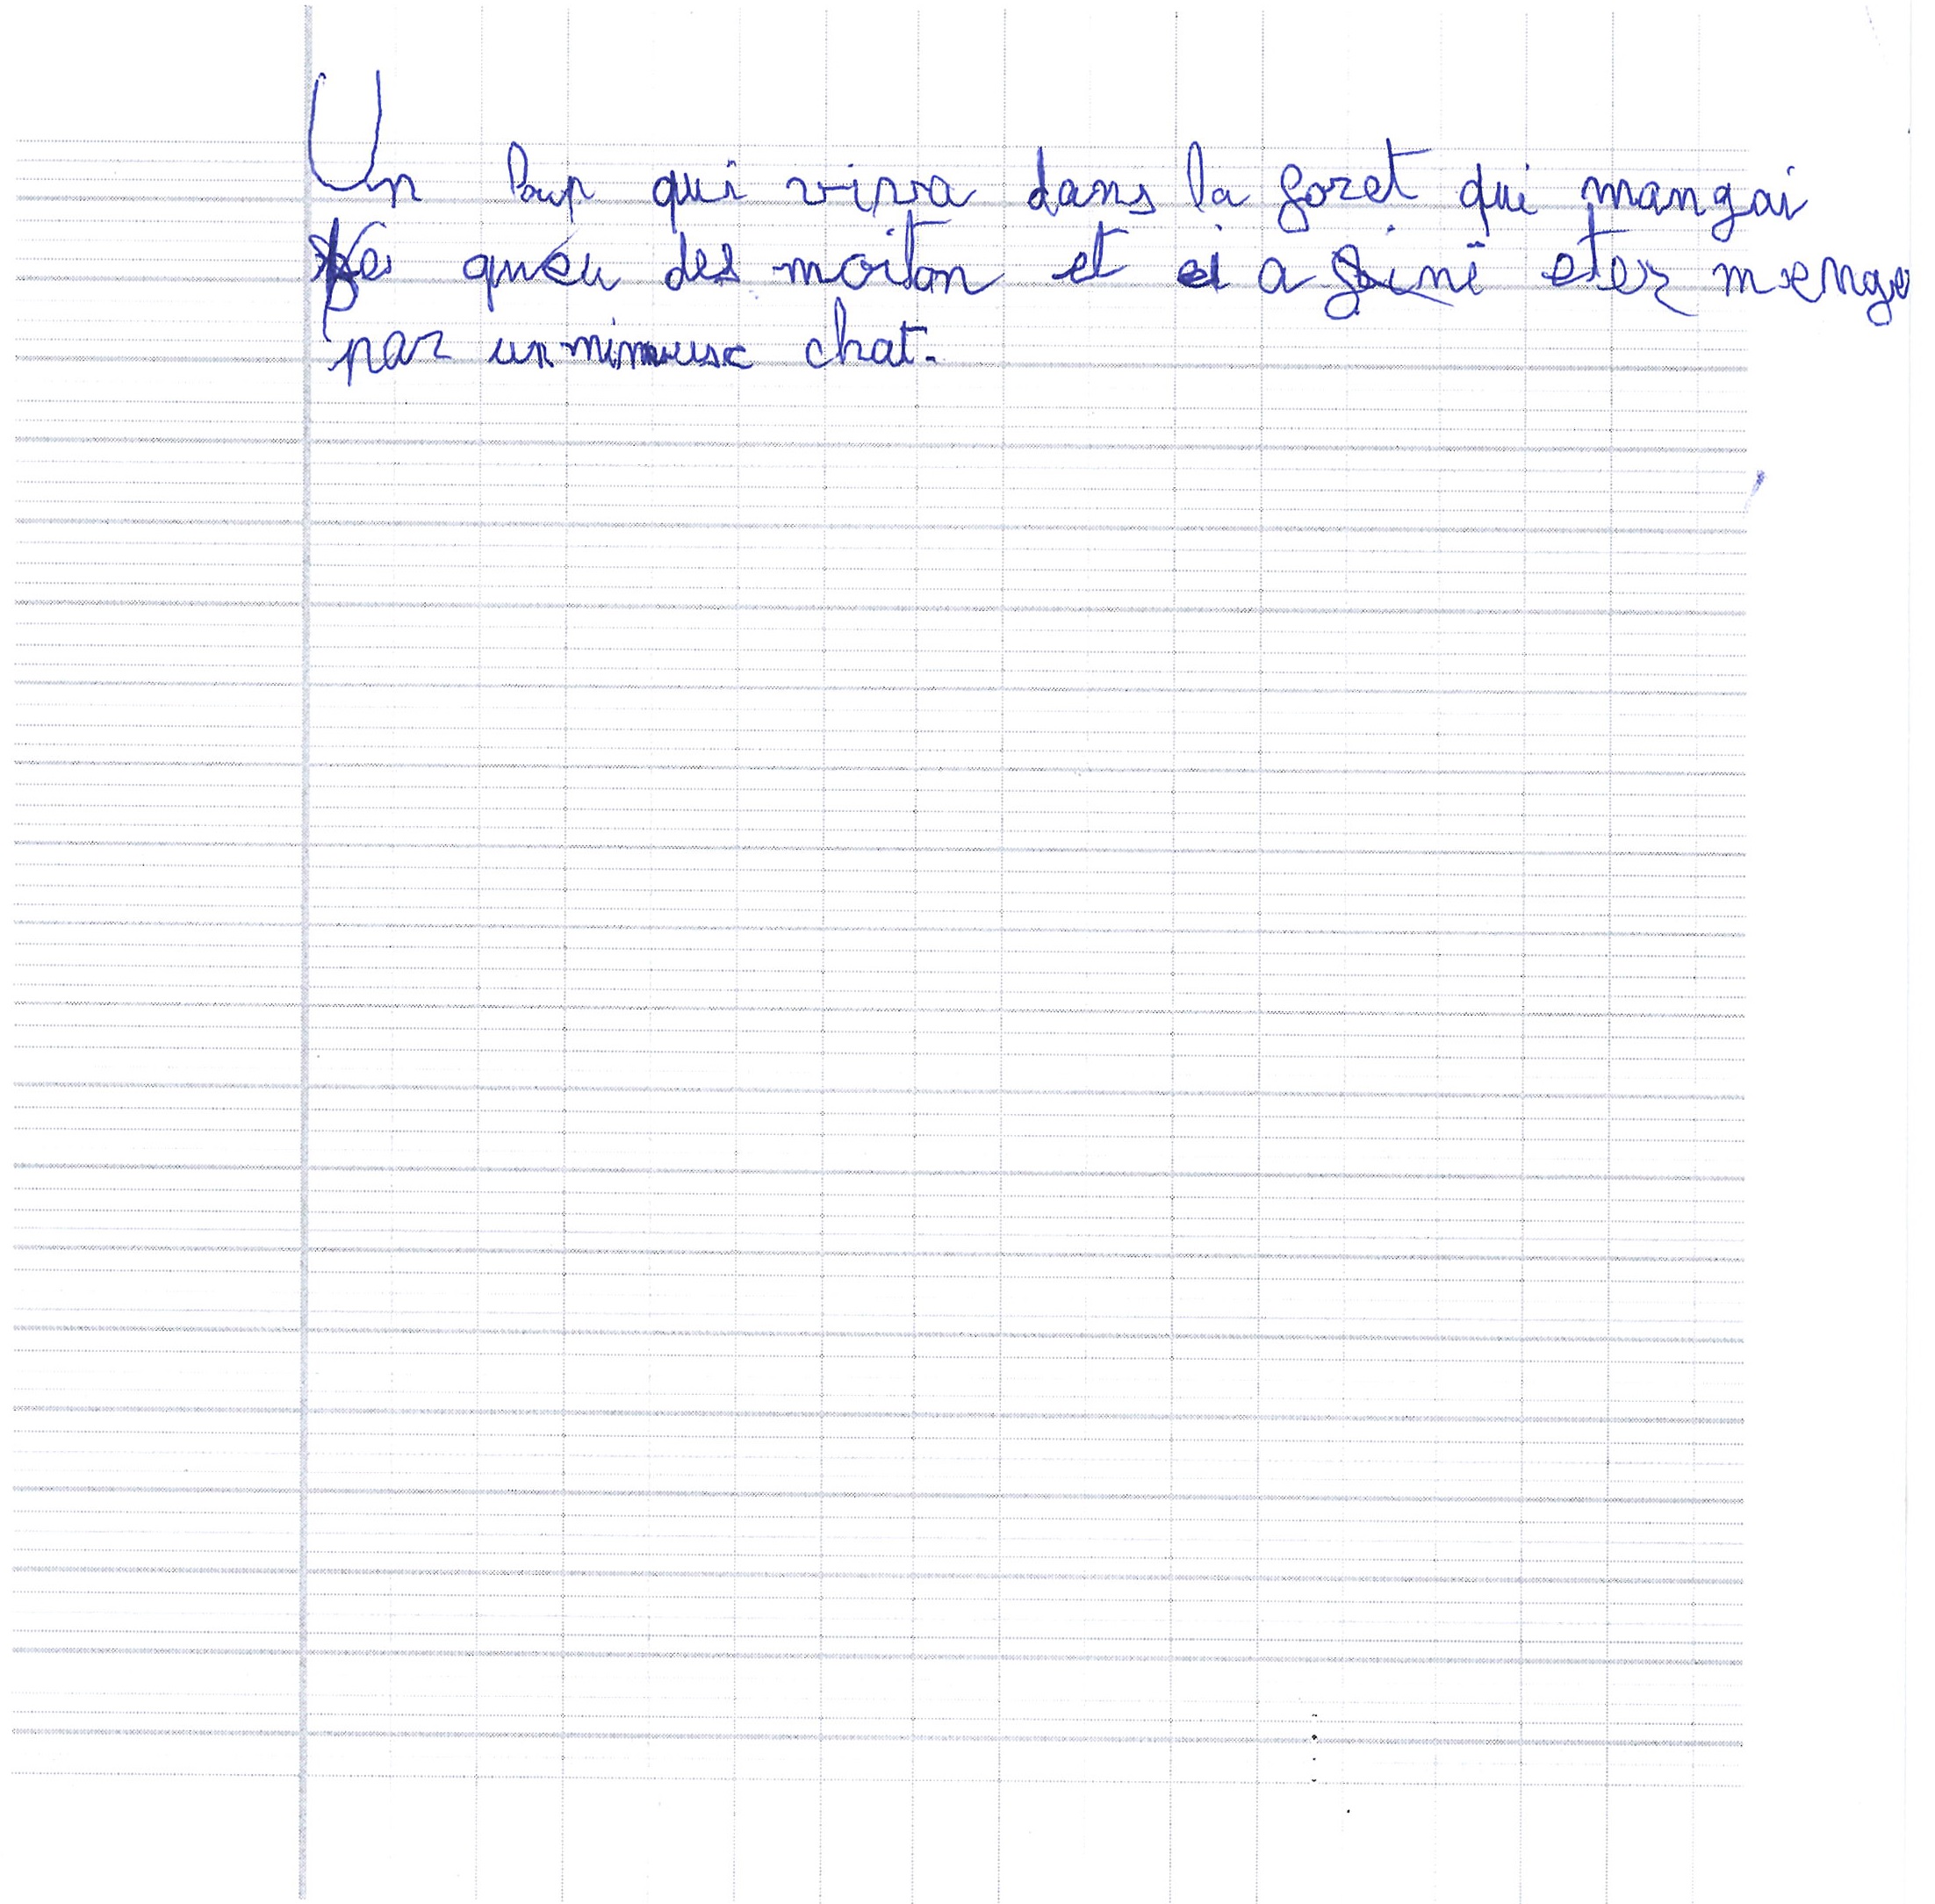 Un loup qui viva dans la foret qui mangai
queu des moiton et a finï eter menge
par un minuusc chat.